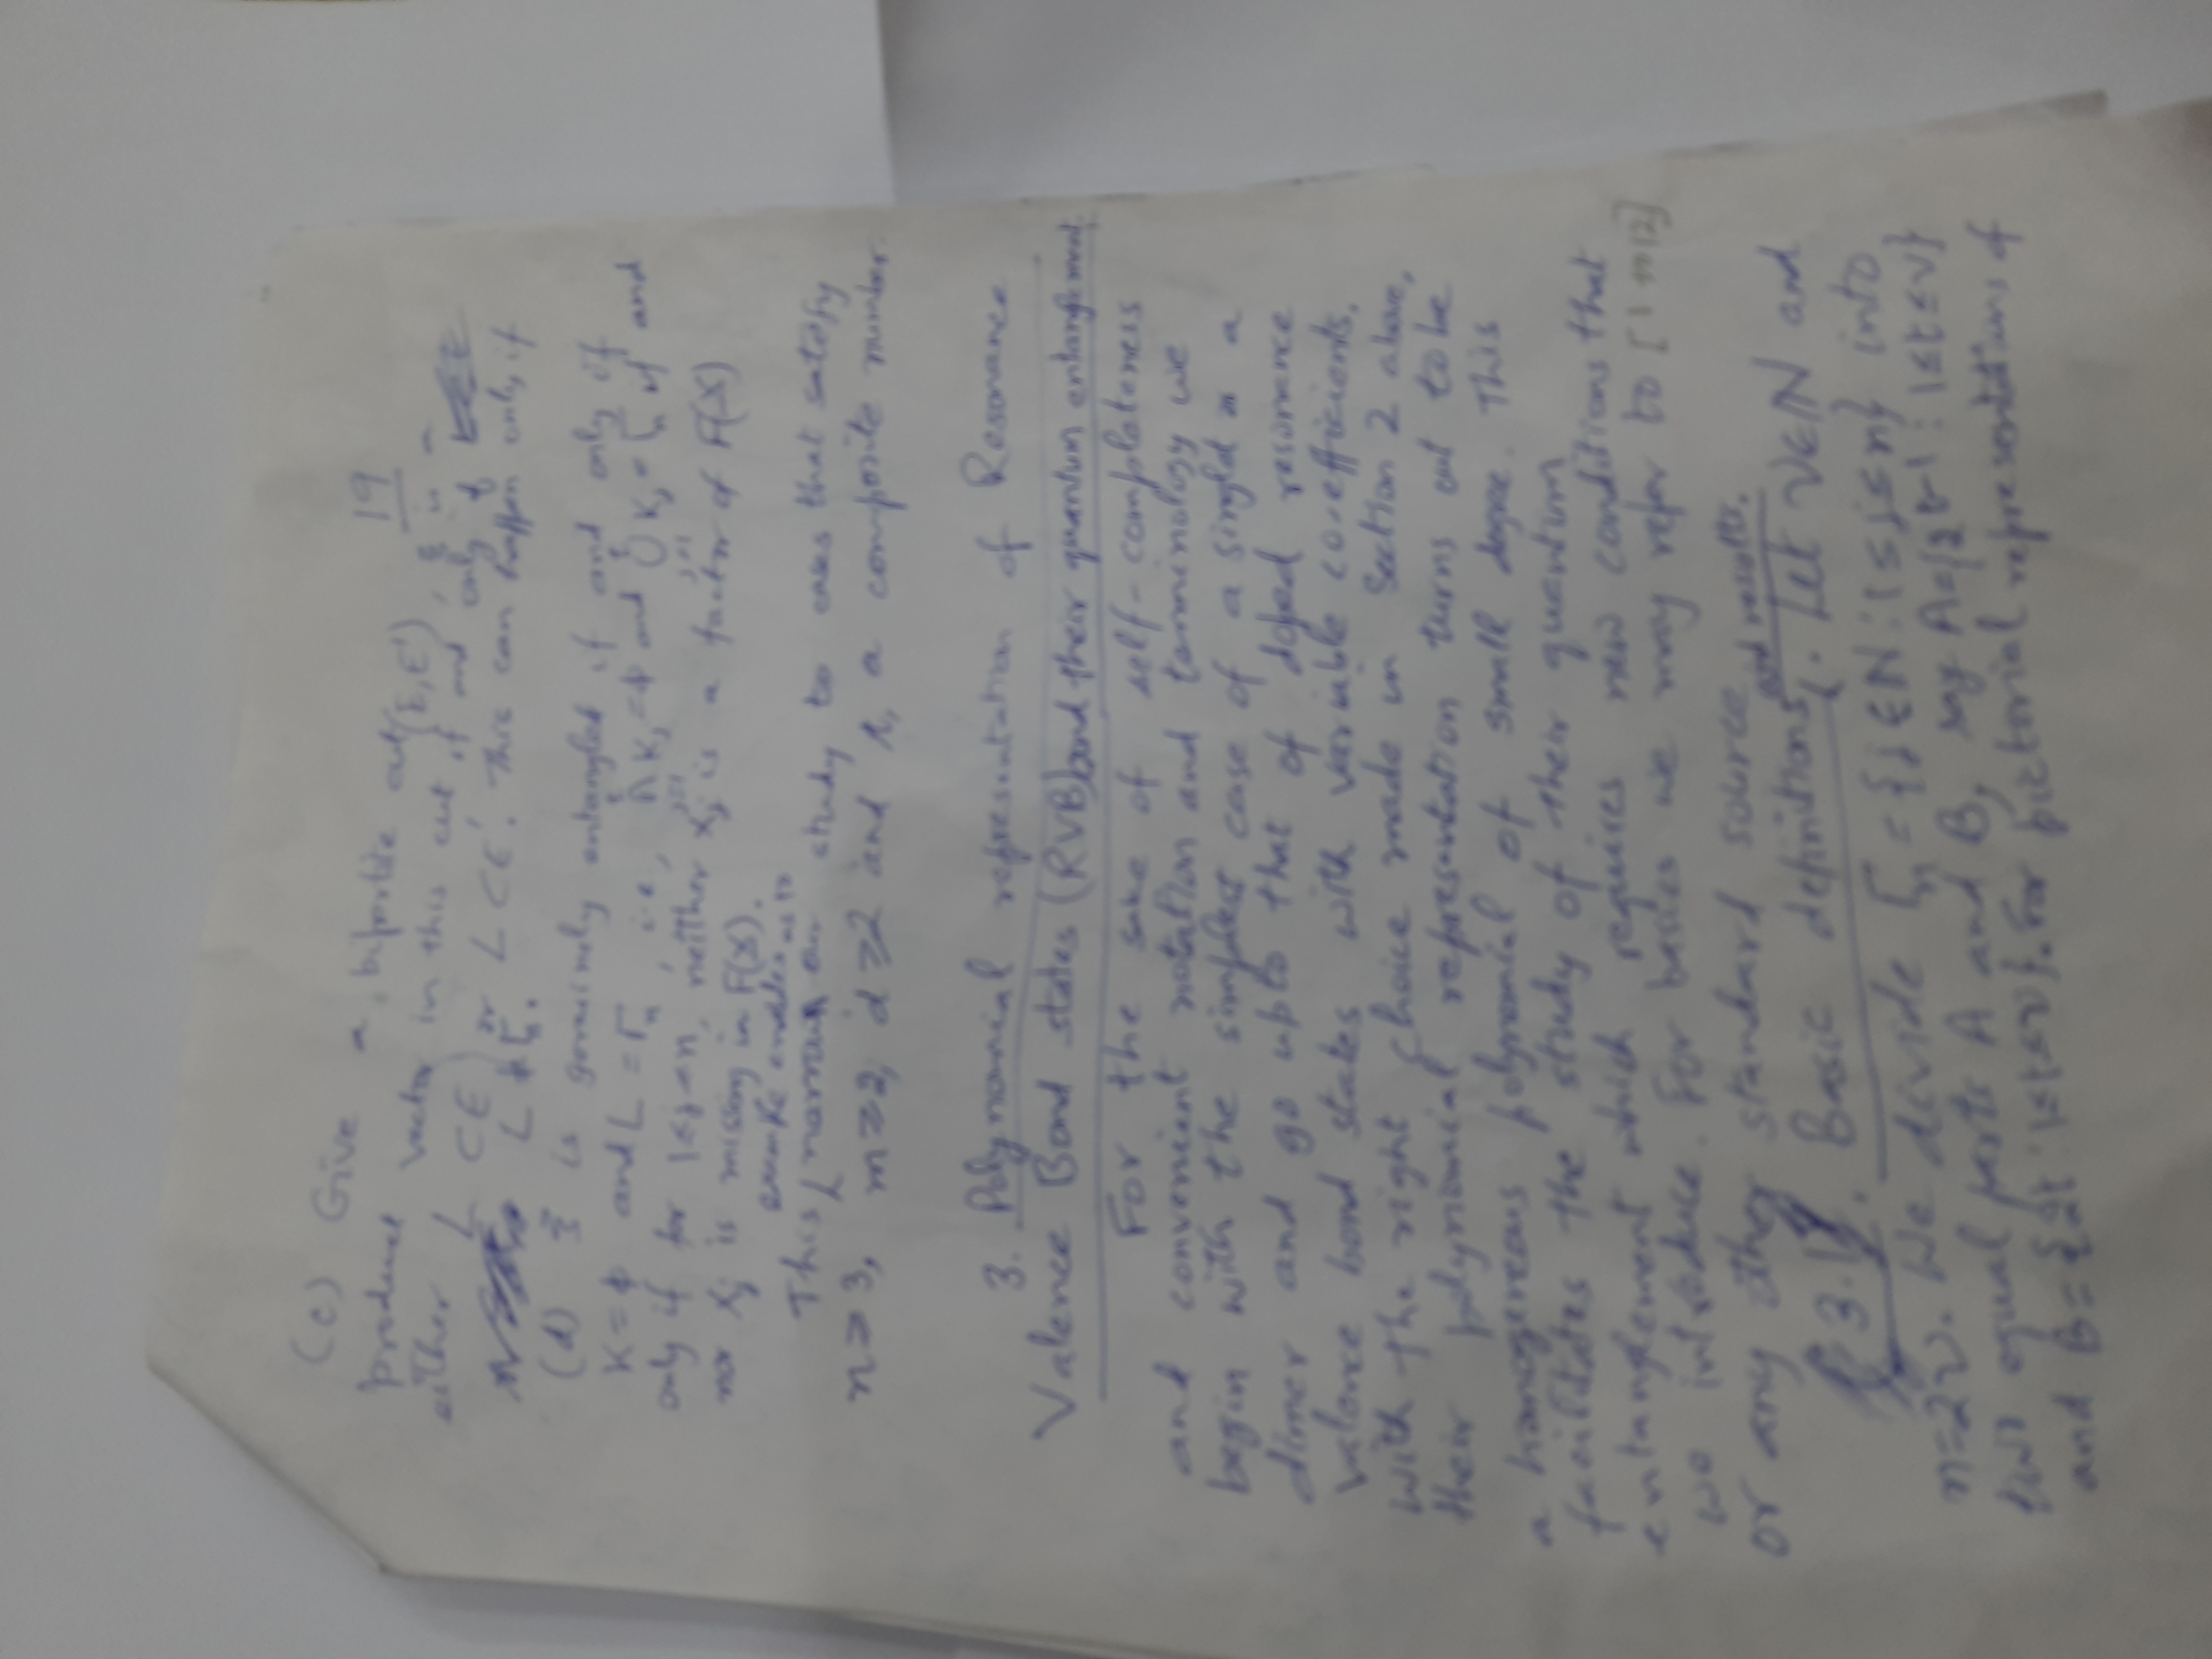 19
(c) Give a bipartite cut (E, E'), ξ is a
product vector in this cut if and only if
either L ⊂ E or L ⊂ E'. This can happen only if
L ≠ Γₙ.
(d) ξ is genuinely entangled if and only if
K = φ and L = Γₙ, i.e., ∩ Kⱼ = φ and ∪ Kⱼ = Γₙ if and
only if for 1≤j≤n, neither Xⱼ is a factor of F(X)
nor Xⱼ is missing in F(X).
example enables us to
This narrow our study to cases that satisfy
n ≥ 3, m ≥ 2, d ≥ 2 and a composite number.
3. Polynomial representation of Resonance
Valence Bond states (RVB) and their quantum entanglement.
For the sake of self-completeness
and convenient notation and terminology we
begin with the simplest case of a a
dimer and go upto that of doped resonance
valence bond states with variable co-efficients.
With the right choice made in Section 2 above,
their polynomial representation turns out to be
a homogeneous polynomial of small degree. This
facilitates the study of their quantum
entanglement which requires new conditions that
we introduce. For basics we may refer to [1 to 12]
or any other standard source
and results.
3.1. Basic definitions. Let ν∈ℕ and
n=2ν. We divide Γₙ = {j∈ℕ : 1≤j≤n} into
two equal parts A and B, say A={2t-1 : 1≤t≤ν}
and B={2t : 1≤t≤ν}. For pictorial representations of